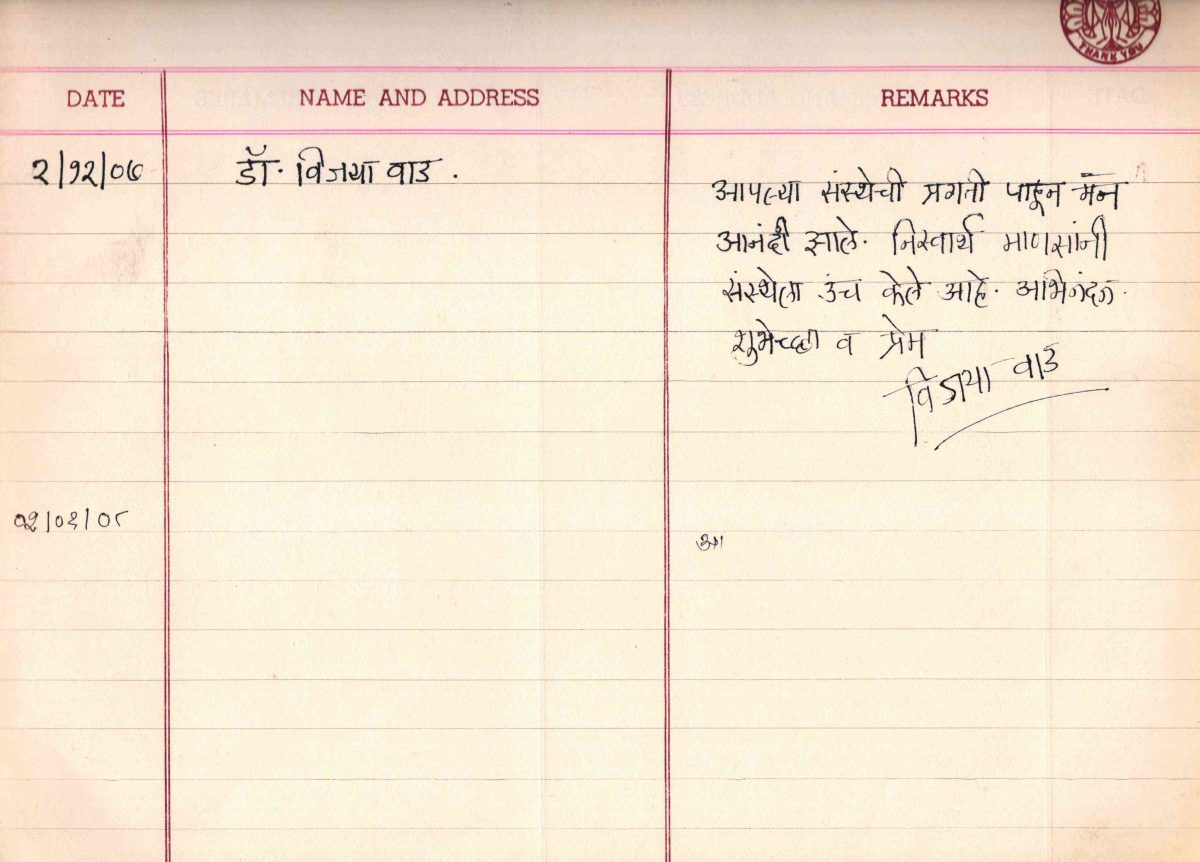 THANK YOU
DATE NAME AND ADDRESS REMARKS
२/१२/०७ डॉ. विजया वाड .
आपल्या संस्थेची प्रगती पाहून मन
आनंदी झाले. निस्वार्थ माणसांनी
संस्थेला उंच केले आहे. अभिनंदन.
शुभेच्छा व प्रेम
विजया वाड
०२/०१/०८
आ